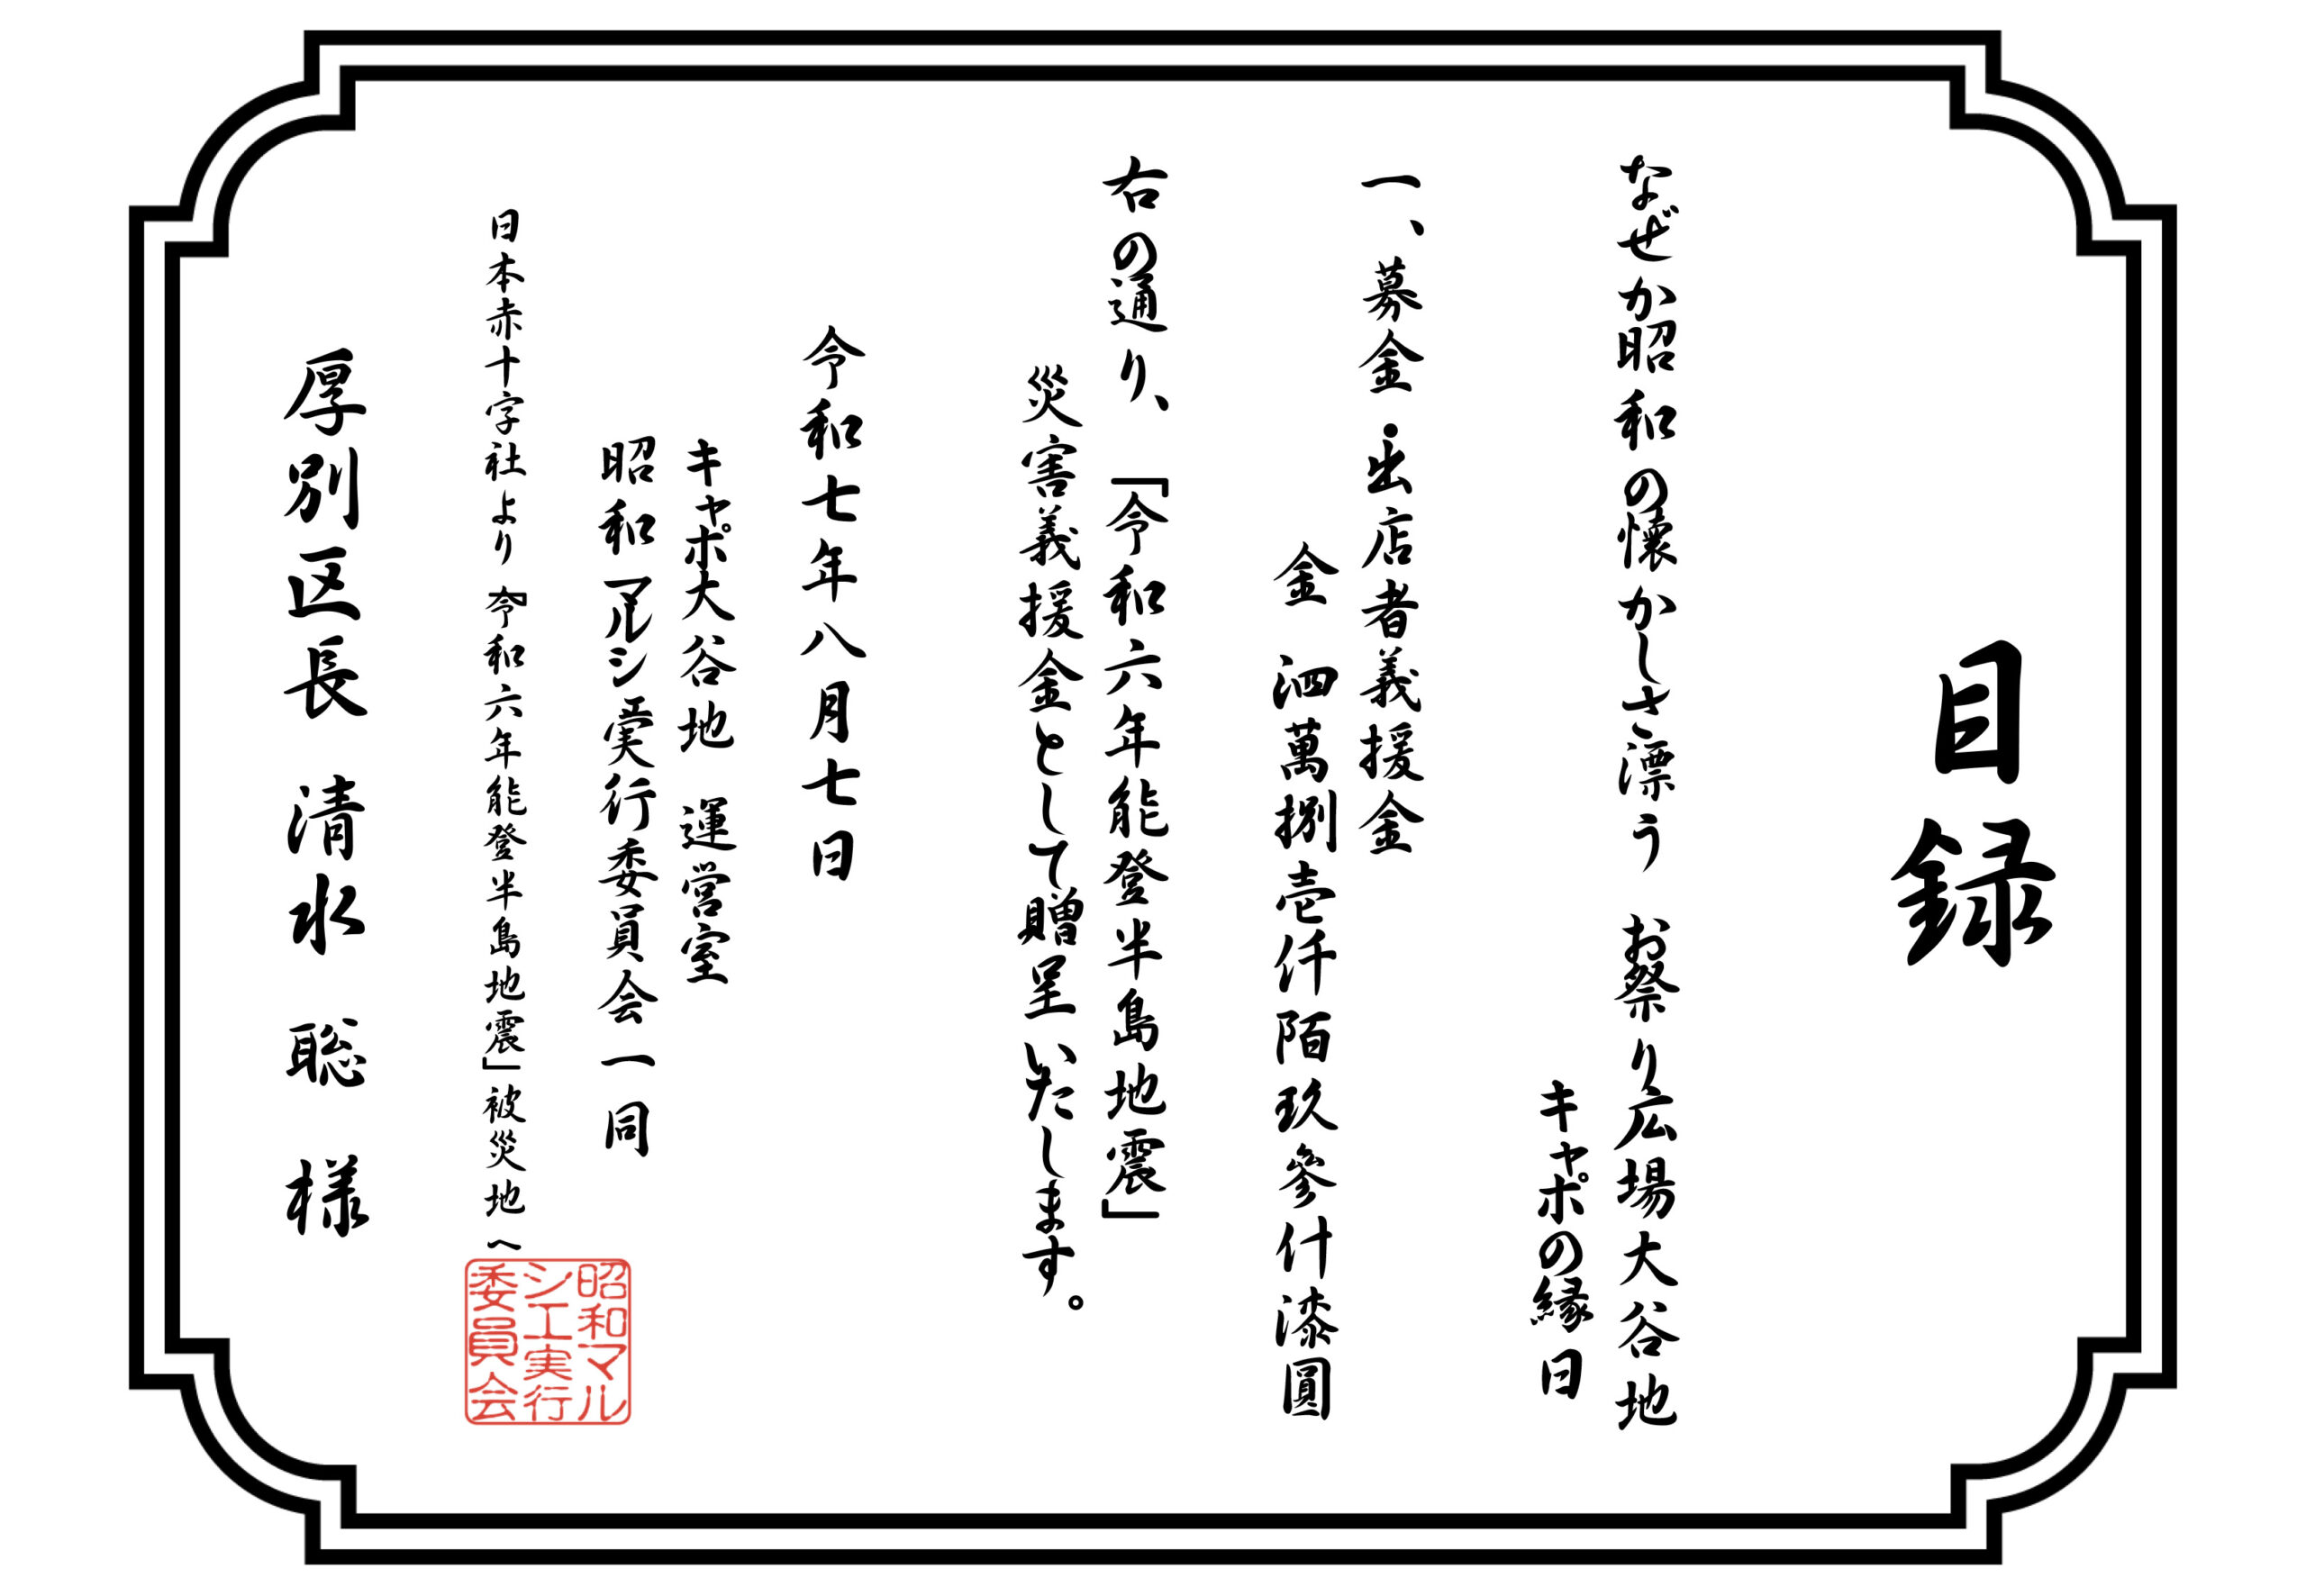 目録
なぜか昭和の懐かしさ漂う　お祭り広場大谷地
キャポの縁日
一、募金・出店者義援金
金　泗萬捌壱仟陌玖參什漆圓
右の通り、「令和六年能登半島地震」
災害義援金として贈呈いたします。
令和七年八月七日
キャポ大谷地　運営室
昭和マルシヱ実行委員会一同
日本赤十字社より『令和六年能登半島地震』被災地へ
厚別区長　清水　聡　様
昭和マル
シエ実行
委員会